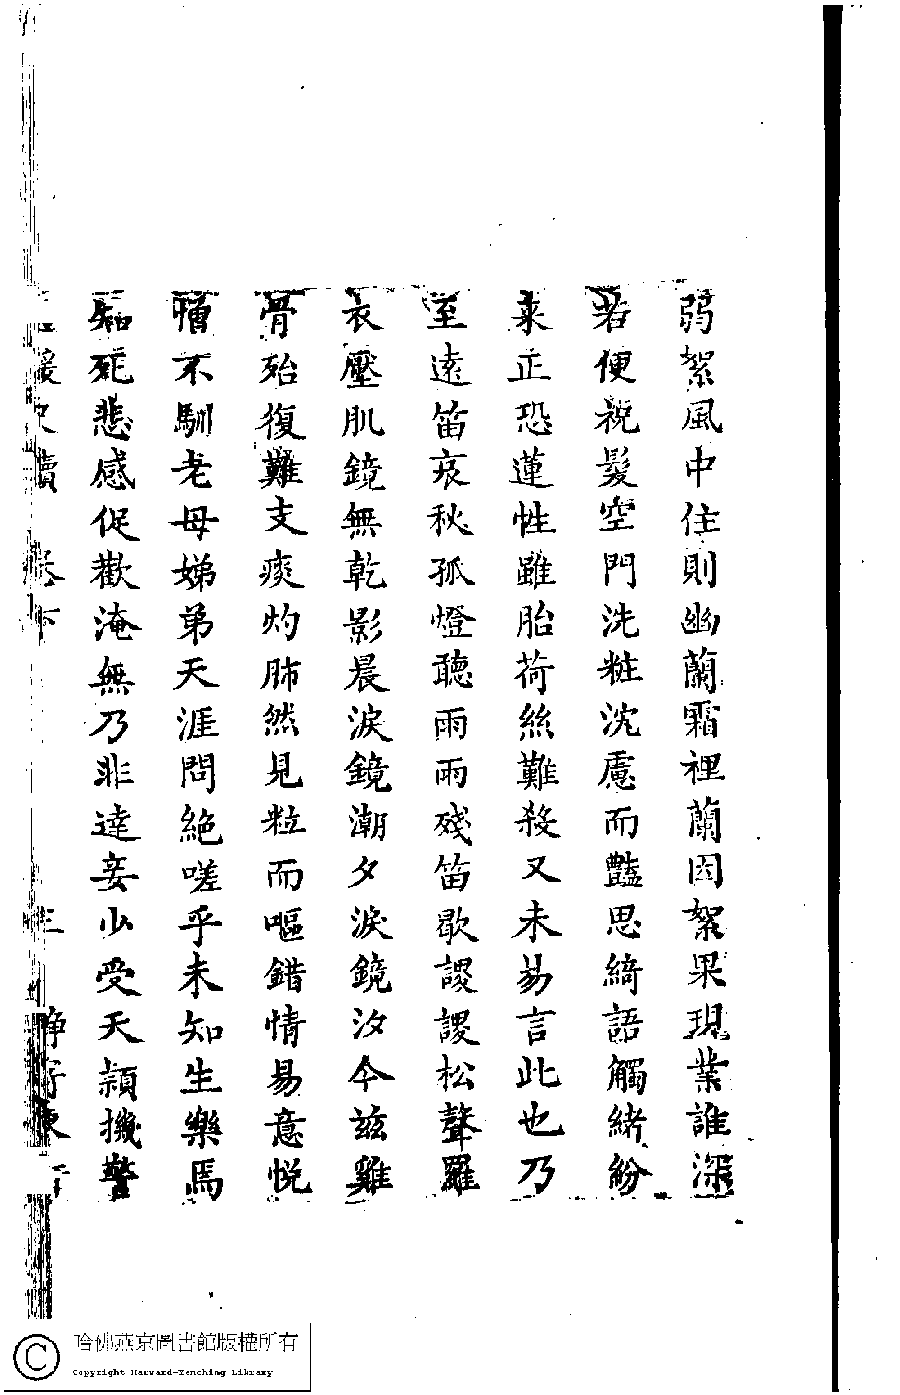 弱絮風中住則幽蘭霜裡蘭因絮果現業誰深
若便祝髮空門洗粧沈慮而豔思綺語觸緒紛
來正恐蓮性雖胎荷絲難殺又未易言此也乃
至遠笛哀秋孤燈聽雨雨殘笛歇謖謖松聲羅
衣壓肌鏡無乾影晨淚鏡潮夕淚鏡汐今茲雞
骨殆復難支痰灼肺然見粒而嘔錯情易意悅
憎不馴老母娣弟天涯問絕嗟乎未知生樂焉
知死悲感促歡淹無乃非達妾少受天穎機警
哈佛燕京圖書館版權所有
Copyright Harvard-Yenching Library